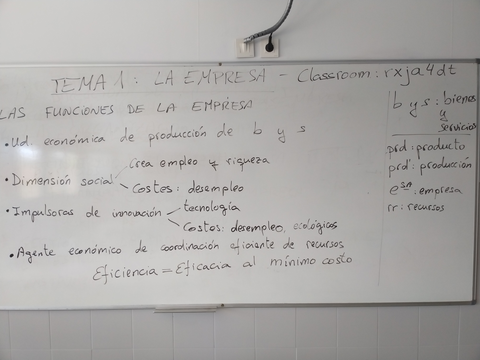 TEMA 1: LA EMPRESA - Classroom: rxja4dt
LAS FUNCIONES DE LA EMPRESA
• Ud. económica de producción de b y s
• Dimensión social
Crea empleo y riqueza
Costes: desempleo
• Impulsoras de innovación
tecnología
Costes: desempleo, ecológicos
• Agente económico de coordinación eficiente de recursos
Eficiencia = Eficacia al mínimo costo
b y s: bienes
y
servicios
prd: producto
prd': producción
esa: empresa
rr: recursos